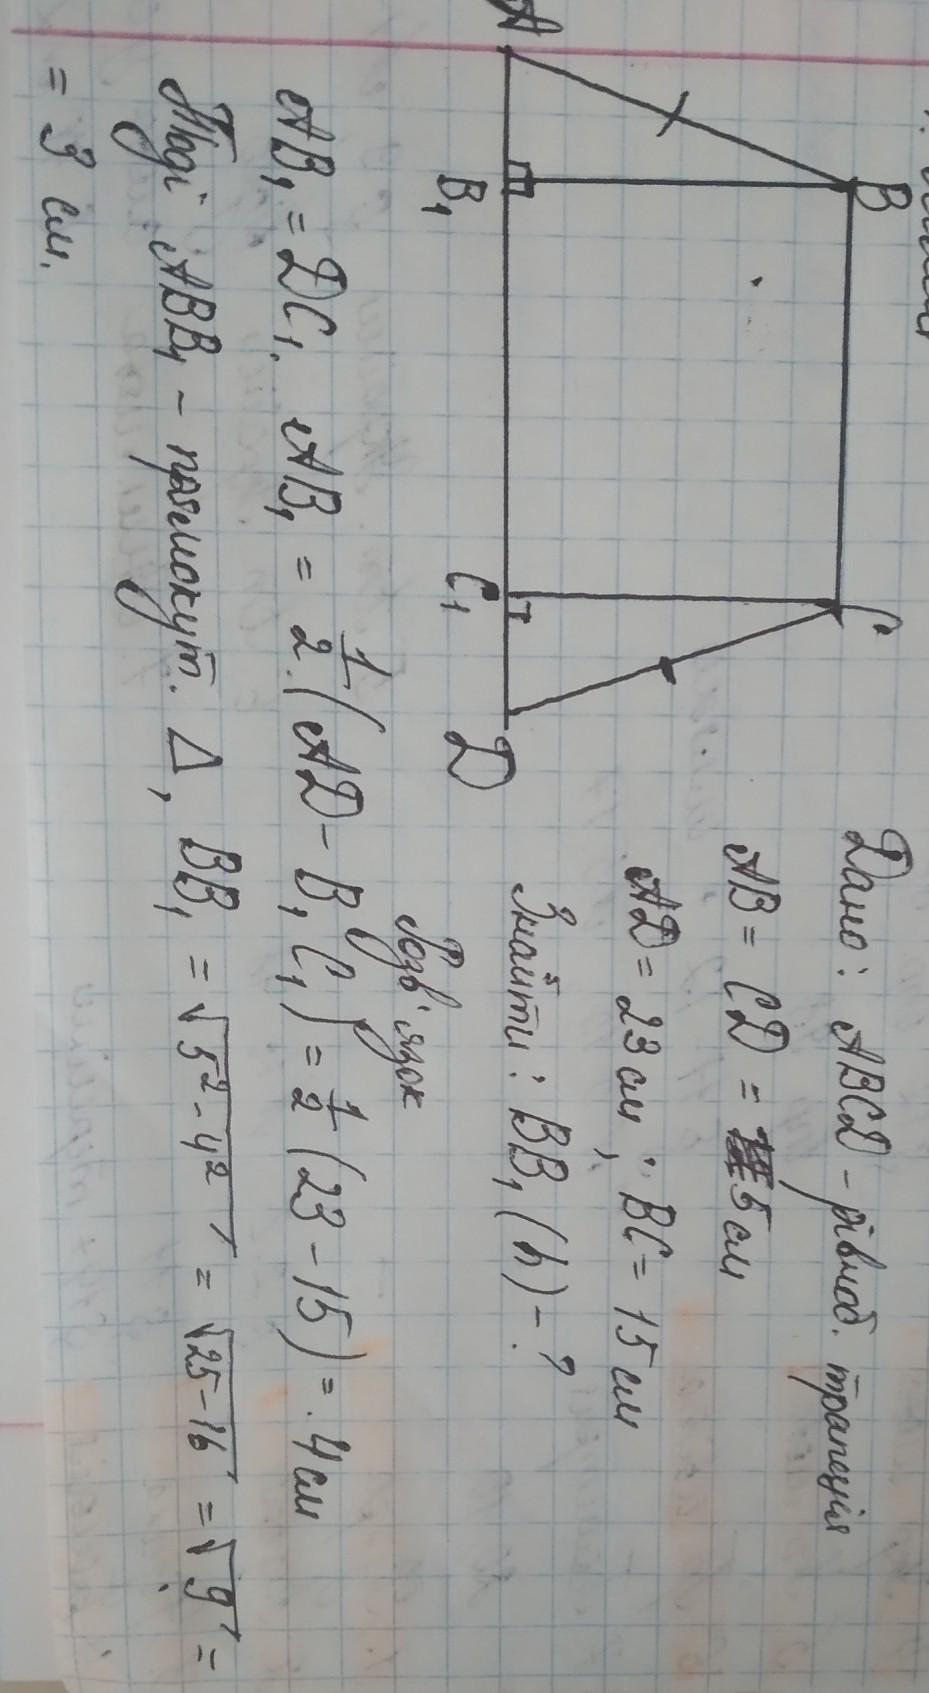 A
B
C
D
B₁
C₁
Дано: ABCD - рівноб. трапеція
AB = CD = 5 см
AD = 23 см; BC = 15 см
Знайти: BB₁ (h) - ?
Розв'язок
AB₁ = DC₁. AB₁ = 1/2 · (AD - B₁C₁) = 1/2 (23 - 15) = 4 см
Тоді ABB₁ - прямокут. Δ, BB₁ = √5² - 4² = √25 - 16 = √9 =
= 3 см.